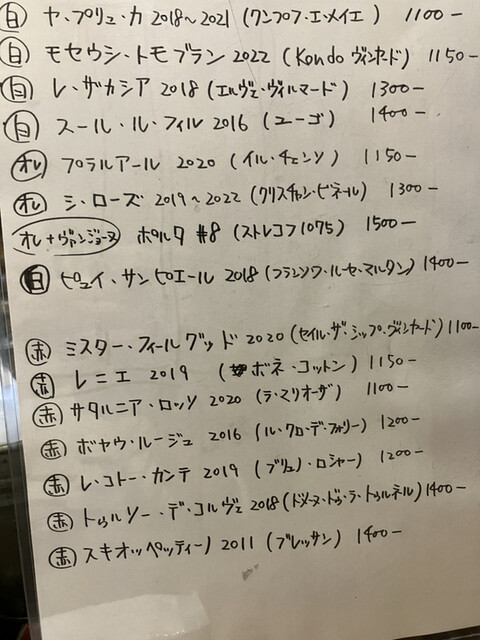 白 ヤ・プリュ・カ 2018〜2021 (ワンプフ・エ・メイエ) 1100ー
白 モセウシ・トモブラン 2022 (Kondo ヴィンヤード) 1150ー
白 レ・ザカシア 2018 (エルヴェ・ヴィルマード) 1300ー
白 スール・ル・フィル 2016 (ユーゴ) 1400ー
オレ プラルアール 2020 (イル・チェンソ) 1150ー
オレ シ・ローズ 2019〜2022 (クリスチャン・ビネール) 1300ー
オレ+ヴァンジョーヌ ポルタ #8 (ストレコフ1075) 1500ー
白 ピュイ・サンピエール 2018 (フランソワ・ルセ・マルタン) 1400ー
赤 ミスター・フィールグッド 2020 (セイル・ザ・シップ・ヴィンヤード) 1100ー
赤 レニエ 2019 (ボネ・コットン) 1150ー
赤 サタルニア・ロッソ 2020 (ラ・マリオーザ) 1100ー
赤 ボヤウ・ルージュ 2016 (ル・クロ・デ・フォリー) 1200ー
赤 レ・コトー・カンテ 2019 (ブリュノ・ロシャー) 1200ー
赤 トゥルソー・デ・コルヴェ 2018 (ドメーヌ・ドゥ・ラ・トゥルネル) 1400ー
赤 スキオッペッティーノ 2011 (ブレッサン) 1400ー